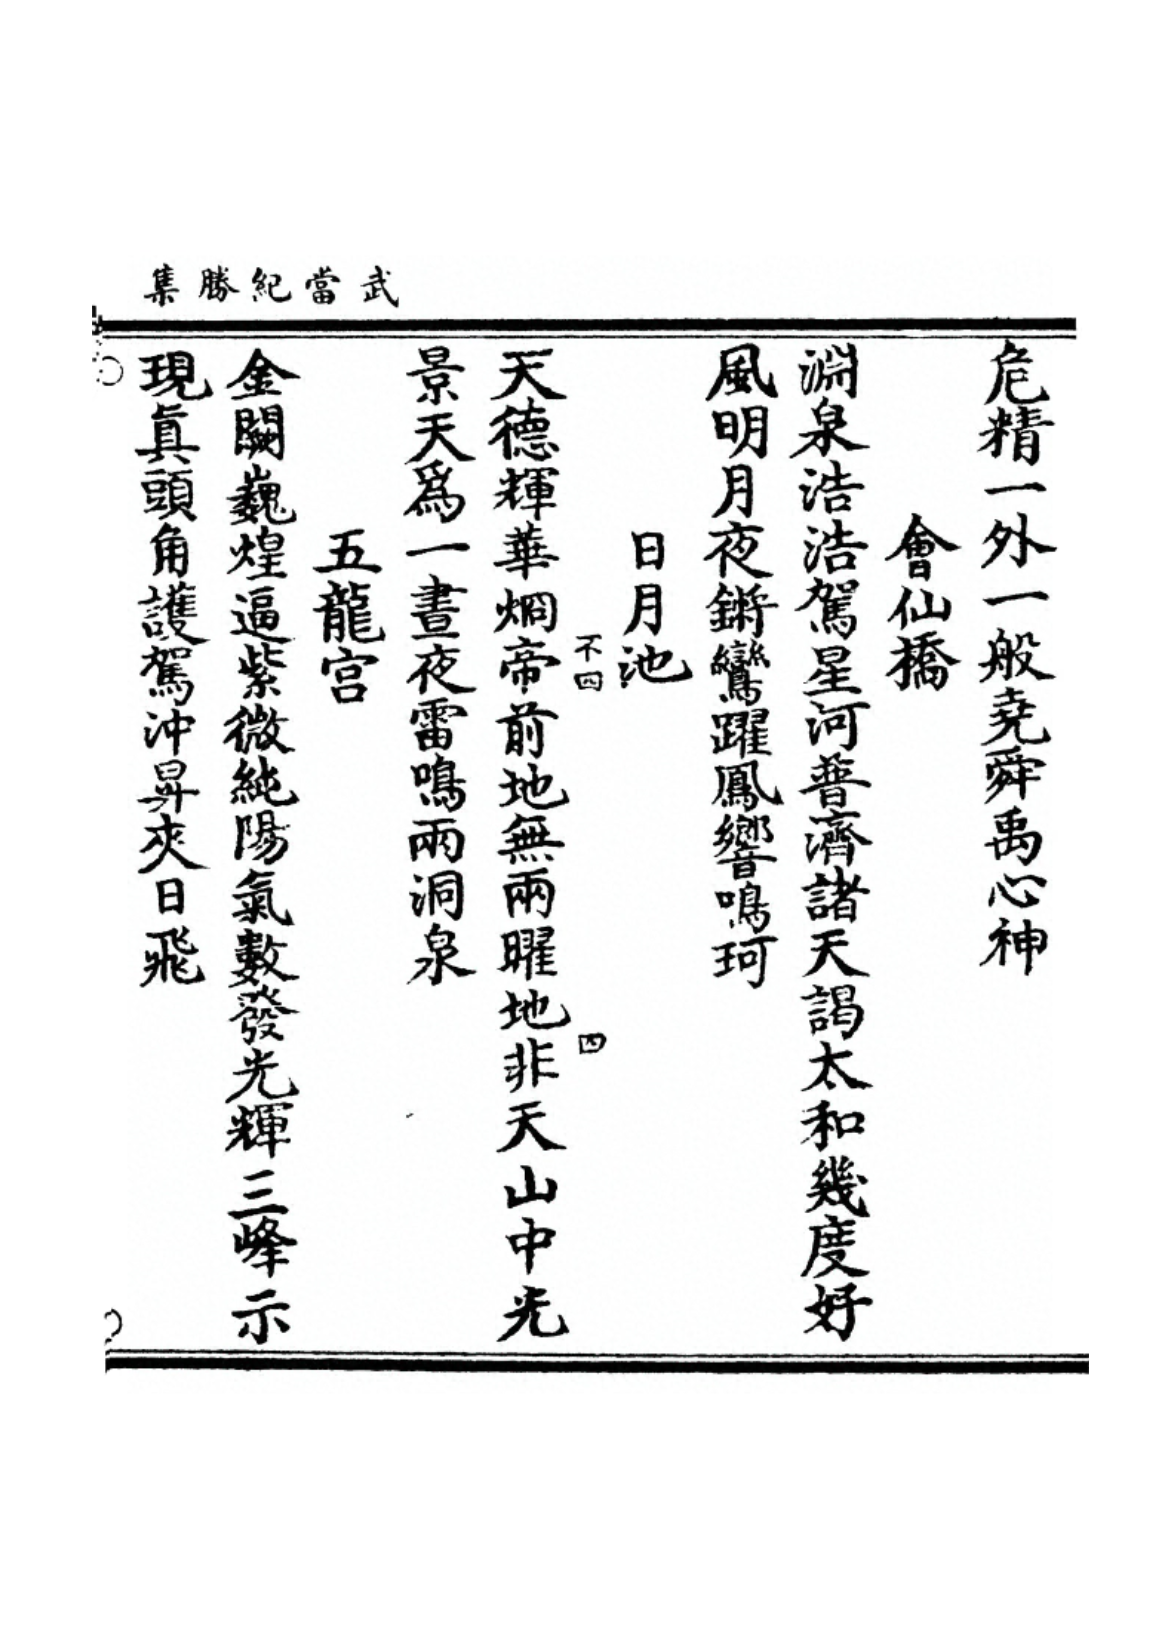 武當紀勝集
危精一外一般堯舜禹心神
會仙橋
淵泉浩浩駕星河普濟諸天謁太和幾度好
風明月夜鏘鸞躍鳳響鳴珂
日月池
不四
四
天德輝華烱帝前地無兩曜地非天山中光
景天爲一晝夜雷鳴兩洞泉
五龍宫
金闕巍煌逼紫微純陽氣數發光輝三峰示
現眞頭角護駕沖昇夾日飛